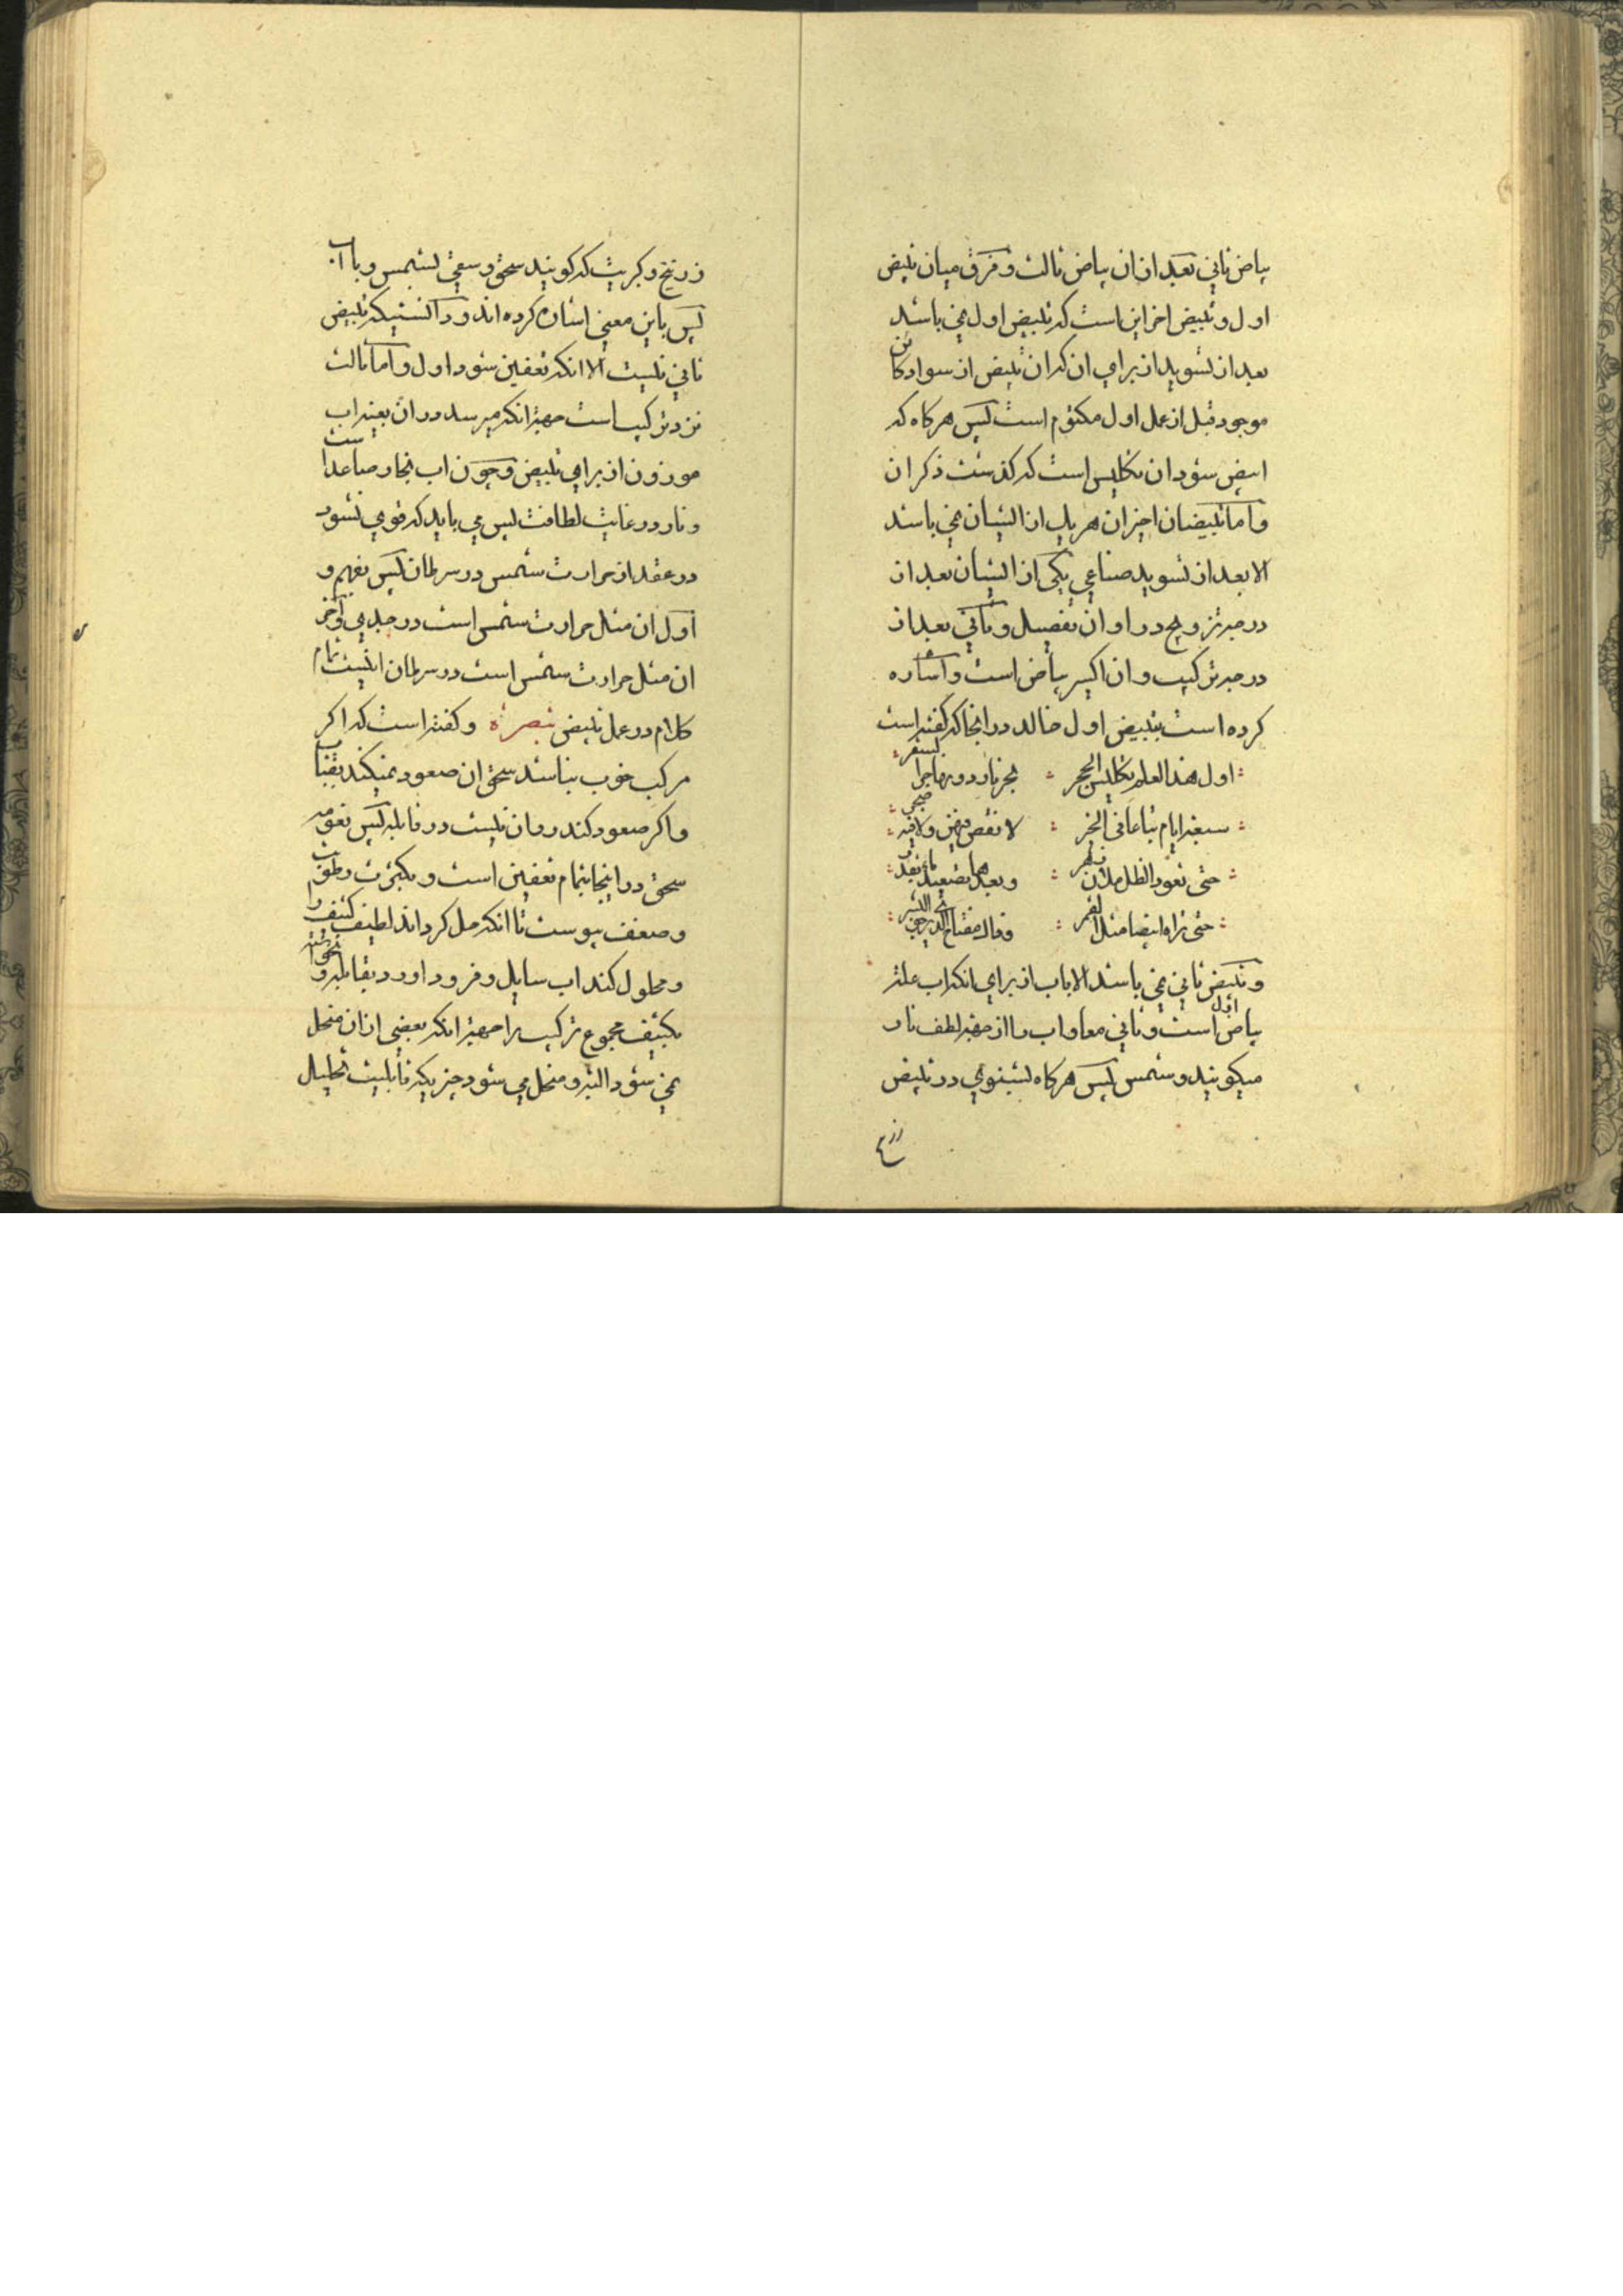 بیاض ثانی بعد از ان بیاض ثالث و فرق میان تبیض
اول و تبیض اخر این است که تبیض اول نمی باشد
بعد از تسوید از برای ان که ان تبیض از سواد کاین
موجود قبل از عمل اول مکتوم است پس هر کاه که
ابیض شود ان تکلیس است که کذشت ذکر ان
و اما تبیضان اخیران هر یک از ایشان نمی باشد
الا بعد از تسوید صناعی یکی از ایشان بعد از
درجه تزویج در اوان تفصیل و ثانی بعد از
درجه ترکیب و ان اکسیر بیاض است و اشاره
کرده است بتبیض اول خالد در انجا که کفته است
اول هذا العلم تکلیس الحجر بحر نار دونها حر سقر
سبعة ایام تباعا فی لا نقص فیهن ولا فیه
حتی تعود الظل وبعدها تصعید
حتی تراه ابیضا مثل القمر وذاک مفتاح الذی
و تبیض ثانی نمی باشد الا باب از برای انکه اب علة
بیاض اول است و ثانی معا و اب را از جهة لطف نار
میکویند و شمس پس هر کاه بشنوی در تبیض
زرنیخ
زرنیخ و کبریت که کویند سحق و سقی بشمس و باب
پس باین معنی اشاره کرده اند و دانستی که تبیض
ثانی نیست الا انکه تعفین شود اول و اما ثالث
نزد ترکیب است جهة انکه میرسد در ان بعینه اب
موزون از برای تبیض و چون اب بخار صاعد است
و نار در غایت لطافت پس می باید که قوی نشود
در عقد از حرارت شمس در سرطان پس بفهم و
اول ان مثل حرارت شمس است در جدی و اخر
ان مثل حرارت شمس است در سرطان اینست تمام
کلام در عمل تبیض تبصرة و کفته است که اکر
مرکب خوب نباشد سحق ان صعود نمیکند
و اکر صعود کند روان نیست در قابله پس
سحق در اینجا تمام تعفین است و بکثرت رطوبت
و ضعف یبوست تا انکه حل کرداند لطیف کثیف را
و محلول کند اب سایل و فرود اورد بقابله و
بکثیف مجموع ترکیب را جهة انکه بعضی از ان منحل
نمی شود البته و منحل می شود چیزیکه قابلیت تحلیل